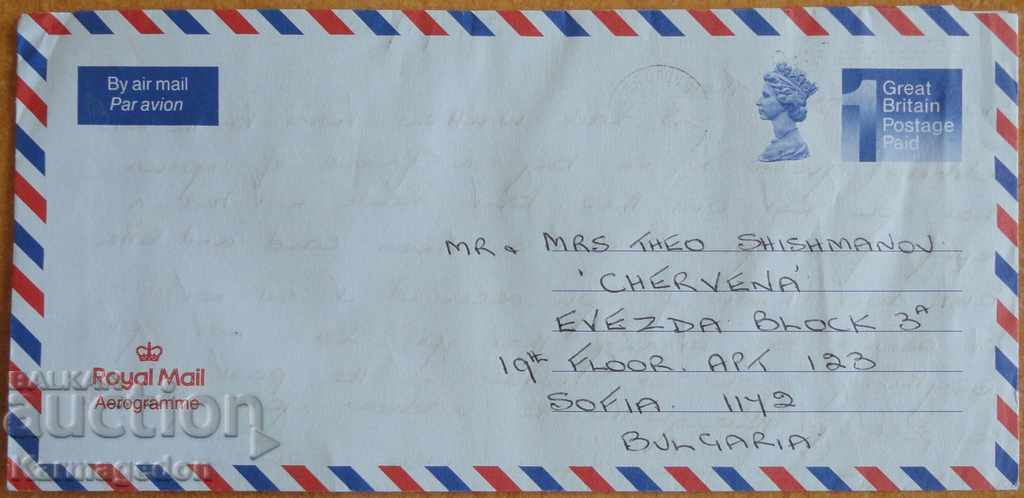 By air mail
Par avion
1 Great
Britain
Postage
Paid
MR & MRS THEO SHISHMANOV
'CHERVENA'
EVEZDA BLOCK 3A
19th FLOOR. APT 123
SOFIA. 1142
BULGARIA
Royal Mail
Aerogramme
BALKAN
auction
Karmagedon